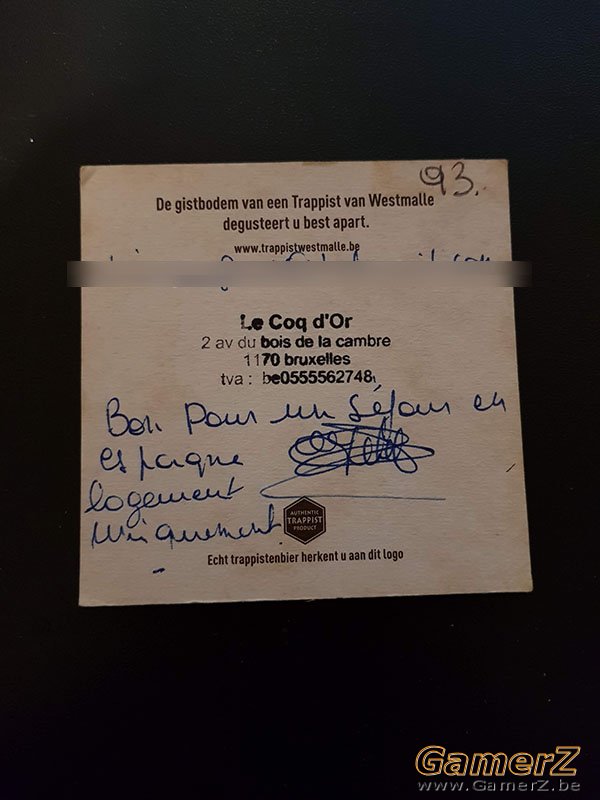 93.
De gistbodem van een Trappist van Westmalle
degusteert u best apart.
www.trappistwestmalle.be
Le Coq d'Or
2 av du bois de la cambre
1170 bruxelles
tva : be0555562748
Bon pour un séjour en
espagne
logement
uniquement
AUTHENTIC
TRAPPIST
PRODUCT
Echt trappistenbier herkent u aan dit logo
GamerZ
www.GamerZ.be